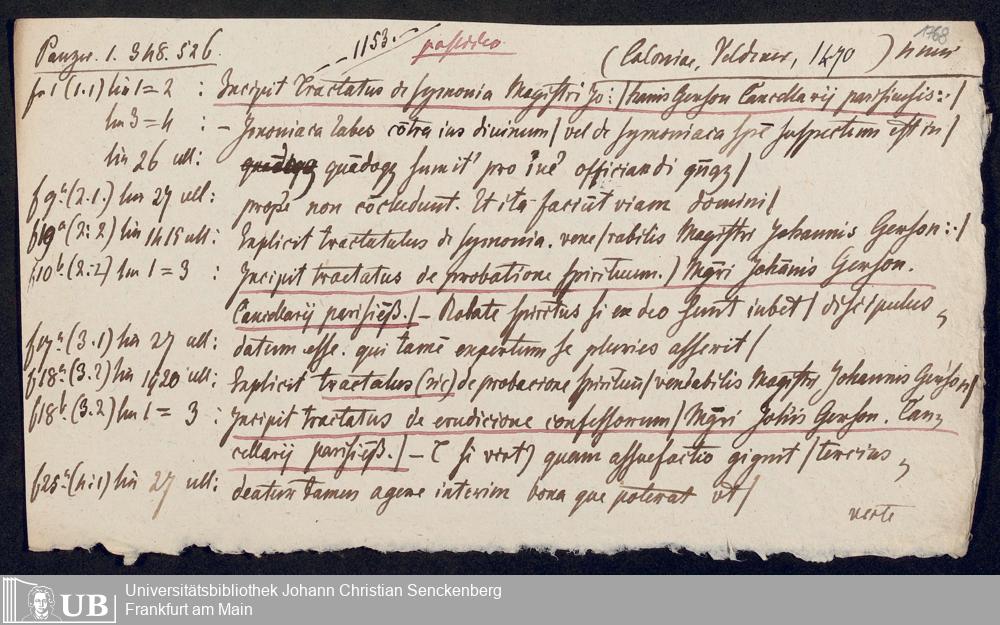 1768
Panzer. 1. 348. 526.
1153.
possideo
(Coloniae, Veldener, 1470)
f 1 (1.1) lin 1=2 : Incipit Tractatus de symonia Magistri Jo: / hanis Gerson Cancellarij parisiensis:·/
lin 3=4 : – Jmoniaca labes cōtra ius diuinum / vel de symoniaca spē suspectum est in /
lin 26 ult: quādoqȝ sumit' pro officiandi /
f 9ᵃ (2.1.) lin 27 ult: prope non cōcludunt. Et ita faciūt viam domini /
f 10ᵃ (2:2) lin 14 15 ult: Explicit tractatulus de symonia. vene / rabilis Magistri Johannis Gerson:·/
f 10ᵇ (2:2) lin 1=3 : Incipit tractatus de probatione spirituum. / Mgrī Johānis Gerson.
Cancellarij parisiēß. / – Robate spiritus si ex deo sunt iubet / discipulus
f 17ᵃ (3.1) lin 27 ult: datum esse. qui tamē expertum se pluries asserit /
f 18ᵃ (3.2) lin 19 20 ult: Explicit tractatus (sic) de probacione spirituū / ven̄abilis Magistri Johannis Gerson /
f 18ᵇ (3.2) lin 1=3 : Incipit tractatus de erudicione confessorum / Mgrī Joh̄is Gerson. Can-
cellarij parisiēß. / – C si quam assuefactio gignit / tercius
f 25ᵃ (4:1) lin 27 ult: deatur tamen agere interim bona que poterat vt /
verte
Universitätsbibliothek Johann Christian Senckenberg
Frankfurt am Main
UB